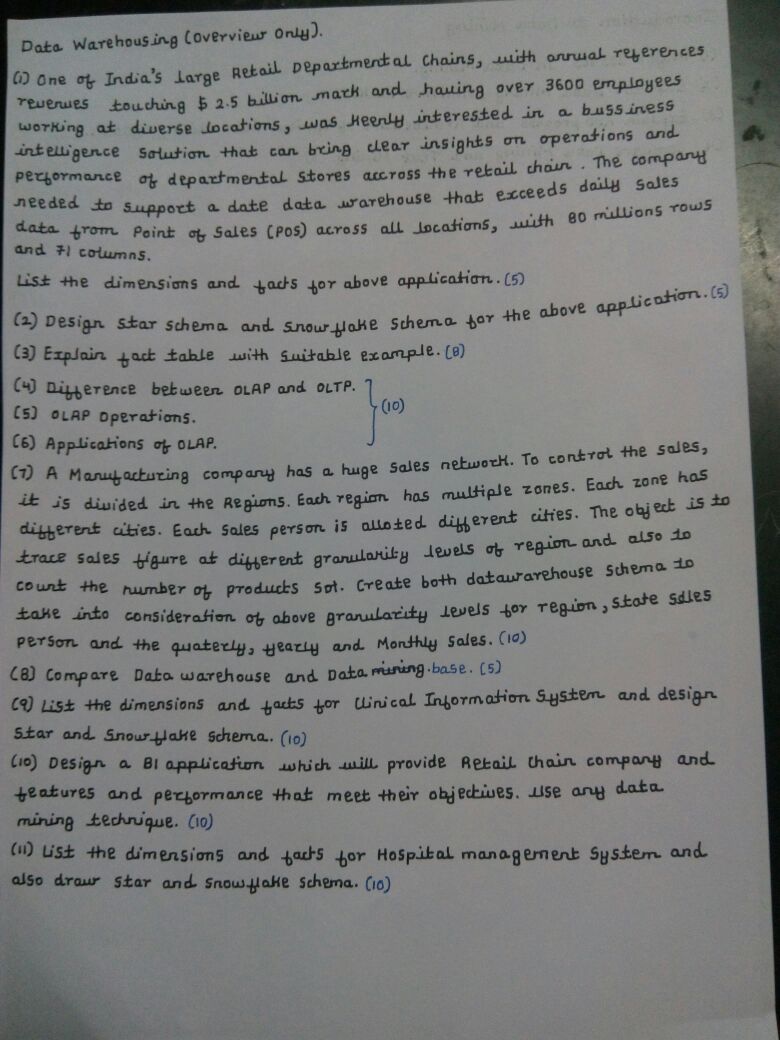 Data Warehousing (Overview Only).
(1) One of India's large Retail Departmental Chains, with annual references
revenues touching $ 2.5 billion mark and having over 3600 employees
working at diverse locations, was keenly interested in a bussiness
intelligence solution that can bring clear insights on operations and
performance of departmental stores accross the retail chain. The company
needed to support a date data warehouse that exceeds daily sales
data from Point of Sales (POS) across all locations, with 80 millions rows
and 71 columns.
List the dimensions and facts for above application. (5)
(2) Design Star schema and Snowflake Schema for the above application. (5)
(3) Explain fact table with suitable example. (8)
(4) Difference between OLAP and OLTP.
(5) OLAP Operations.
(10)
(6) Applications of OLAP.
(7) A Manufacturing company has a huge sales network. To control the sales,
it is divided in the Regions. Each region has multiple zones. Each zone has
different cities. Each sales person is alloted different cities. The object is to
trace sales figure at different granularity levels of region and also to
count the number of products sot. Create both datawarehouse schema to
take into consideration of above granularity levels for region, state sales
person and the quaterly, yearly and Monthly sales. (10)
(8) Compare Data warehouse and Data mining.base. (5)
(9) List the dimensions and facts for Clinical Information System and design
Star and Snowflake schema. (10)
(10) Design a BI application which will provide Retail Chain company and
features and performance that meet their objectives. Use any data
mining technique. (10)
(11) List the dimensions and facts for Hospital management System and
also draw Star and Snowflake Schema. (10)